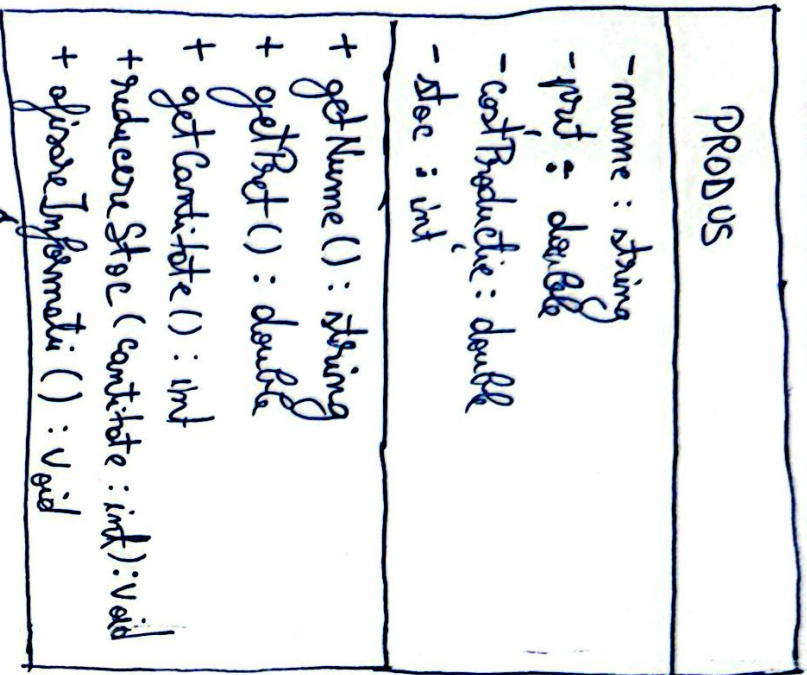 PRODUS
- nume : string
- pret : double
- costProductie : double
- stoc : int
+ getNume() : string
+ getPret() : double
+ getCantitate() : int
+ reducereStoc (cantitate : int) : void
+ afisareInformatii() : void